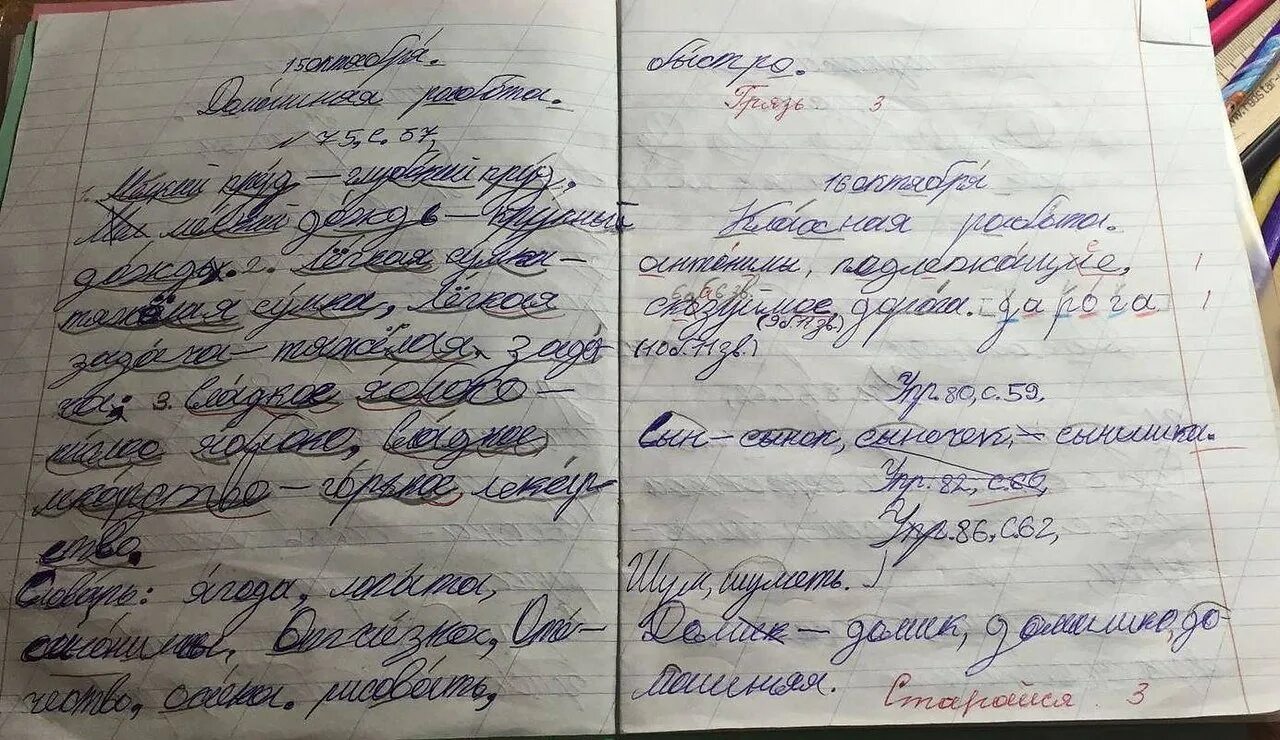 15 октября.
Домашная работа.
75, с. 57,
1. Мелкий пруд — глубокий пруд.
мелкий дождь — крупный
дождь. 2. Лёгкая сумка —
тяжёлая сумка, лёгкая
задача — тяжёлая зада
ча. 3. Сладкое яблоко —
кислое яблоко, сладкое
лекарство — горькое лекар
ство.
Словарь: ягода, лопата,
синонимы, Отчизна, Оте-
чество, осина. рисовать,
быстро.
Грязь 3
16 октября
Классная работа.
антонимы, подлежащие, е 1
сказуймое, дорога. дарога 1
(9б. 11зв.)
(10б. 11зв.)
Упр. 80, с. 59.
Сын — сынок, сыночек, — сынишка.
Упр. 82, с. 60,
Упр. 86, с. 62,
Шум, шуметь.
Домик — домик, домишко, до-
машняя.
Старайся 3